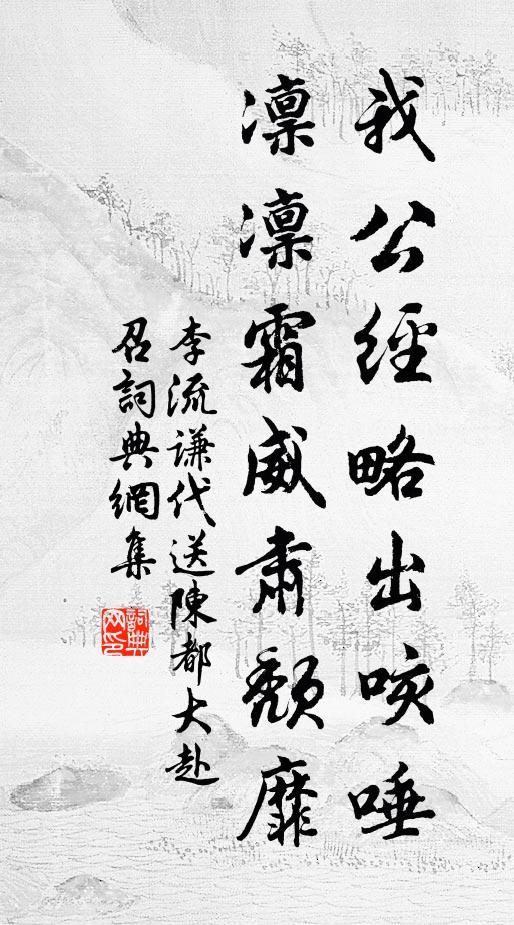 我公經略出咳唾
凛凛霜威肅頹靡
李流謙代送陳都大赴
召詞典網集
詞典
网印